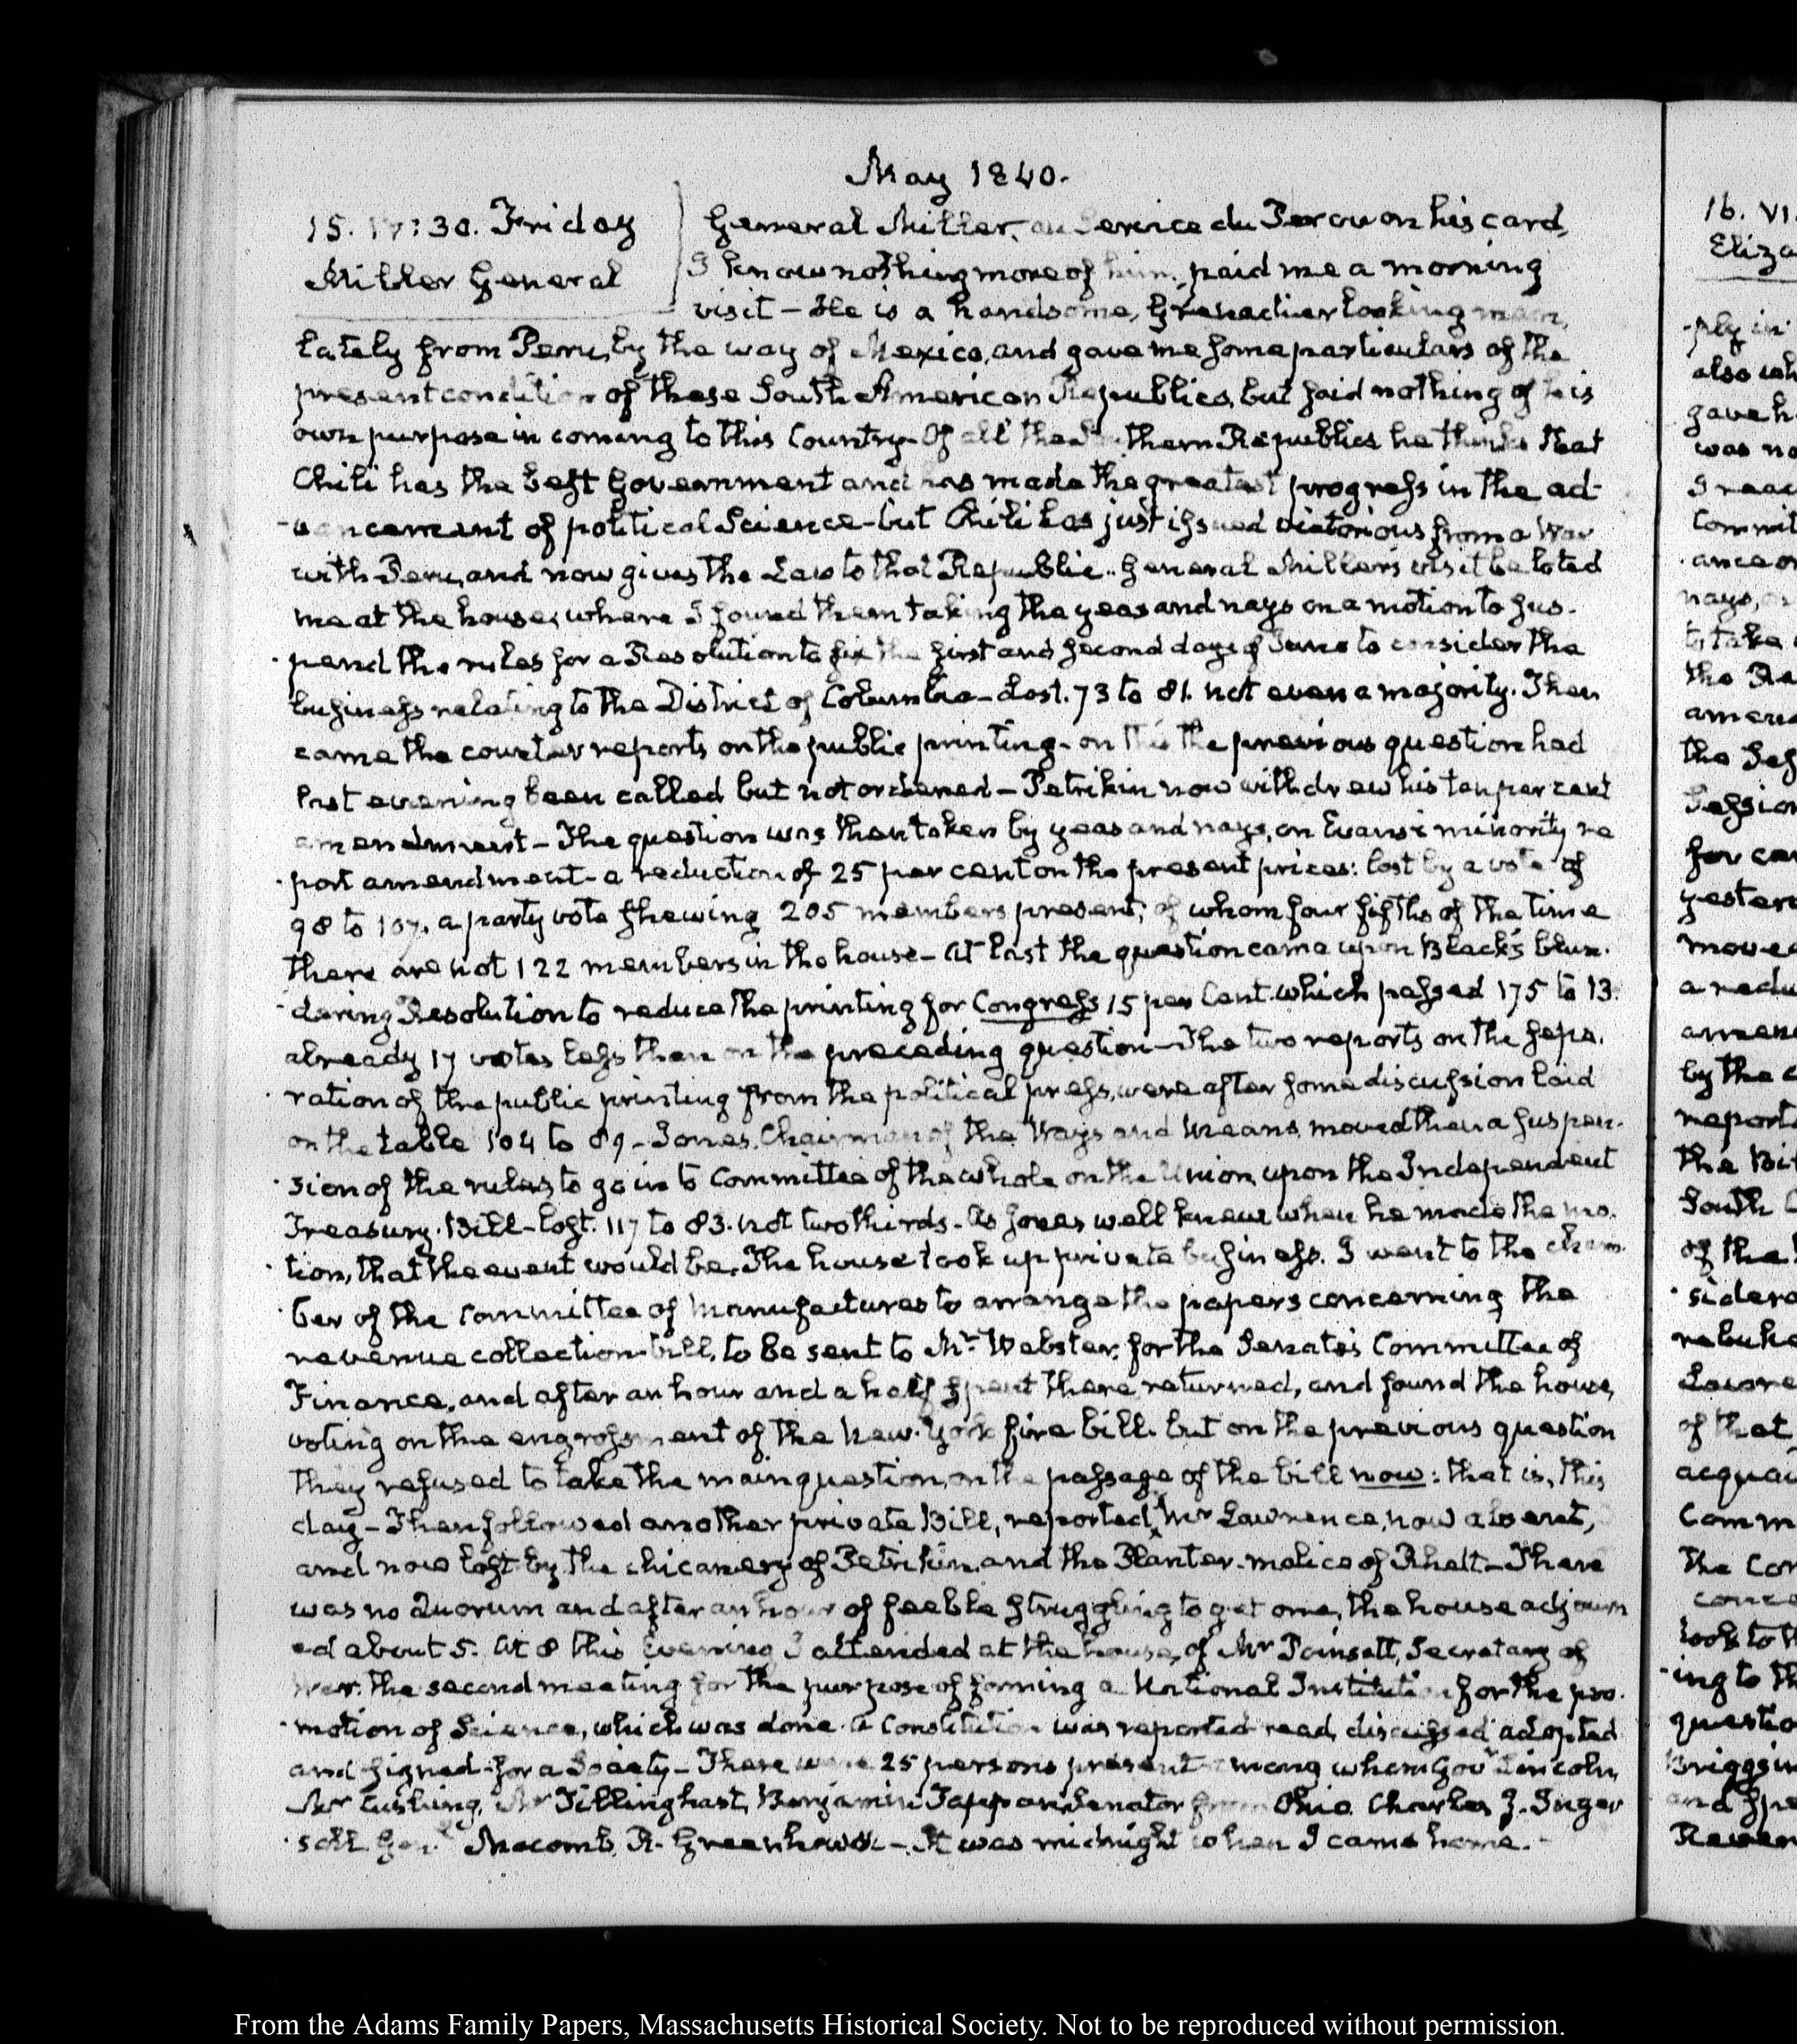 May 1840.
15. IV:30. Friday
Miller General
General Miller, au Service du Perou on his card,
I know nothing more of him, paid me a morning
visit – He is a handsome, Grenadier looking man,
lately from Peru, by the way of Mexico, and gave me some particulars of the
present condition of those South American Republics, but said nothing of his
own purpose in coming to this Country – Of all the Southern Republics he thinks that
Chili has the best Government and has made the greatest progress in the ad-
-vancement of political Science – but Chili has just issued victorious from a War
with Peru, and now gives the Law to that Republic. General Miller's visit belated
me at the house, where I found them taking the yeas and nays on a motion to sus-
-pend the rules for a Resolution to fix the first and second days of June to consider the
business relating to the District of Columbia – Lost. 73 to 81. not even a majority. Then
came the counter reports on the public printing – on this the previous question had
last evening been called but not ordered – Petrikin now withdrew his ten per cent
amendment – The question was then taken by yeas and nays, on Evans's minority re
-port amendment – a reduction of 25 per cent on the present prices: lost by a vote of
98 to 107. a party vote shewing 205 members present; of whom four fifths of the time
there are not 122 members in the house – At last the question came upon Black's blun-
-dering Resolution to reduce the printing for Congress 15 per Cent. which passed 175 to 13.
already 17 votes less than on the preceding question – The two reports on the sepa-
-ration of the public printing from the political press, were after some discussion laid
on the table 104 to 89 – Jones, Chairman of the Ways and Means, moved then a suspen-
-sion of the rules to go into Committee of the whole on the Union, upon the Independent
Treasury. Bill – lost. 117 to 83. not two thirds – As Jones well knew when he made the mo-
-tion, that the event would be. The house took up private business. I went to the cham-
-ber of the Committee of Manufactures to arrange the papers concerning the
revenue collection bill, to be sent to Mr. Webster, for the Senate's Committee of
Finance, and after an hour and a half spent there returned, and found the house,
voting on the engrossment of the New-York fire bill. but on the previous question
they refused to take the main question, on the passage of the bill now: that is, this
day – Then followed another private Bill, reported ^ Mr Lawrence, now absent,
and now lost by the chicanery of Petrikin, and the Planter-malice of Rhett – There
was no Quorum and after an hour of feeble struggling to get one, the house adjourn
ed about 5. At 8 this Evening I attended at the house, of Mr Poinsett, Secretary of
War. the second meeting for the purpose of forming a National Institution for the pro-
-motion of Science, which was done. a Constitution was reported read, discussed adopted
and signed – for a Society – There were 25 persons present among whom Govr Lincoln,
Mr Cushing, Mr Tillinghast, Benjamin Tappan, Senator from Ohio. Charles J. Inger
-soll Genl Macomb, R. Greenhow – It was midnight when I came home. –
16. VI.
Eliza
From the Adams Family Papers, Massachusetts Historical Society. Not to be reproduced without permission.